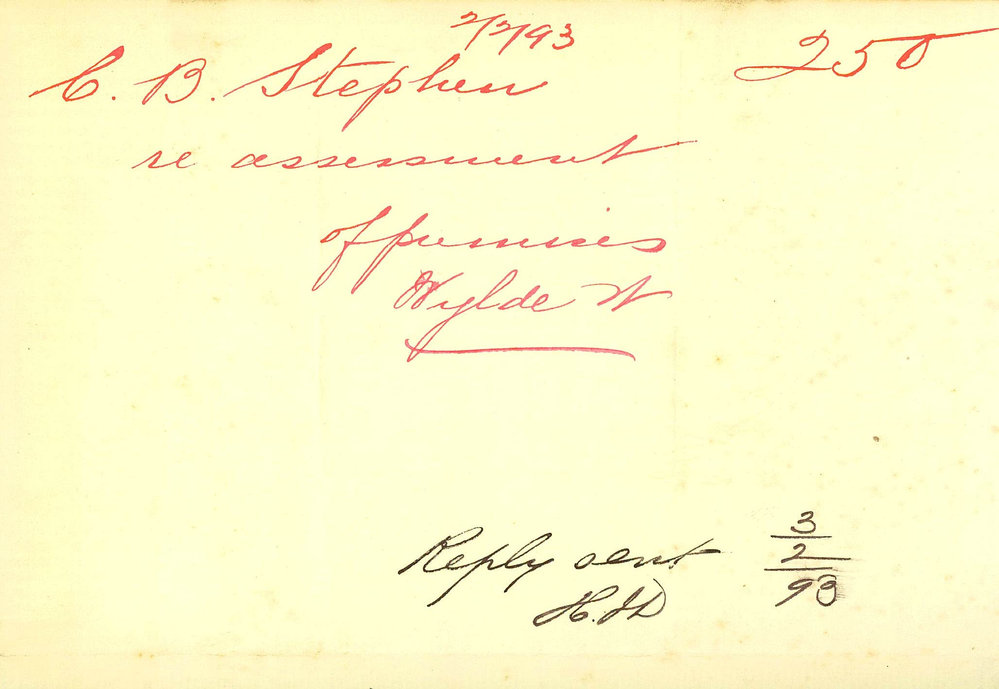 2/2/93
C. B. Stephen 250
re assessment
of premises
Wylde St
Reply sent 3/2/93